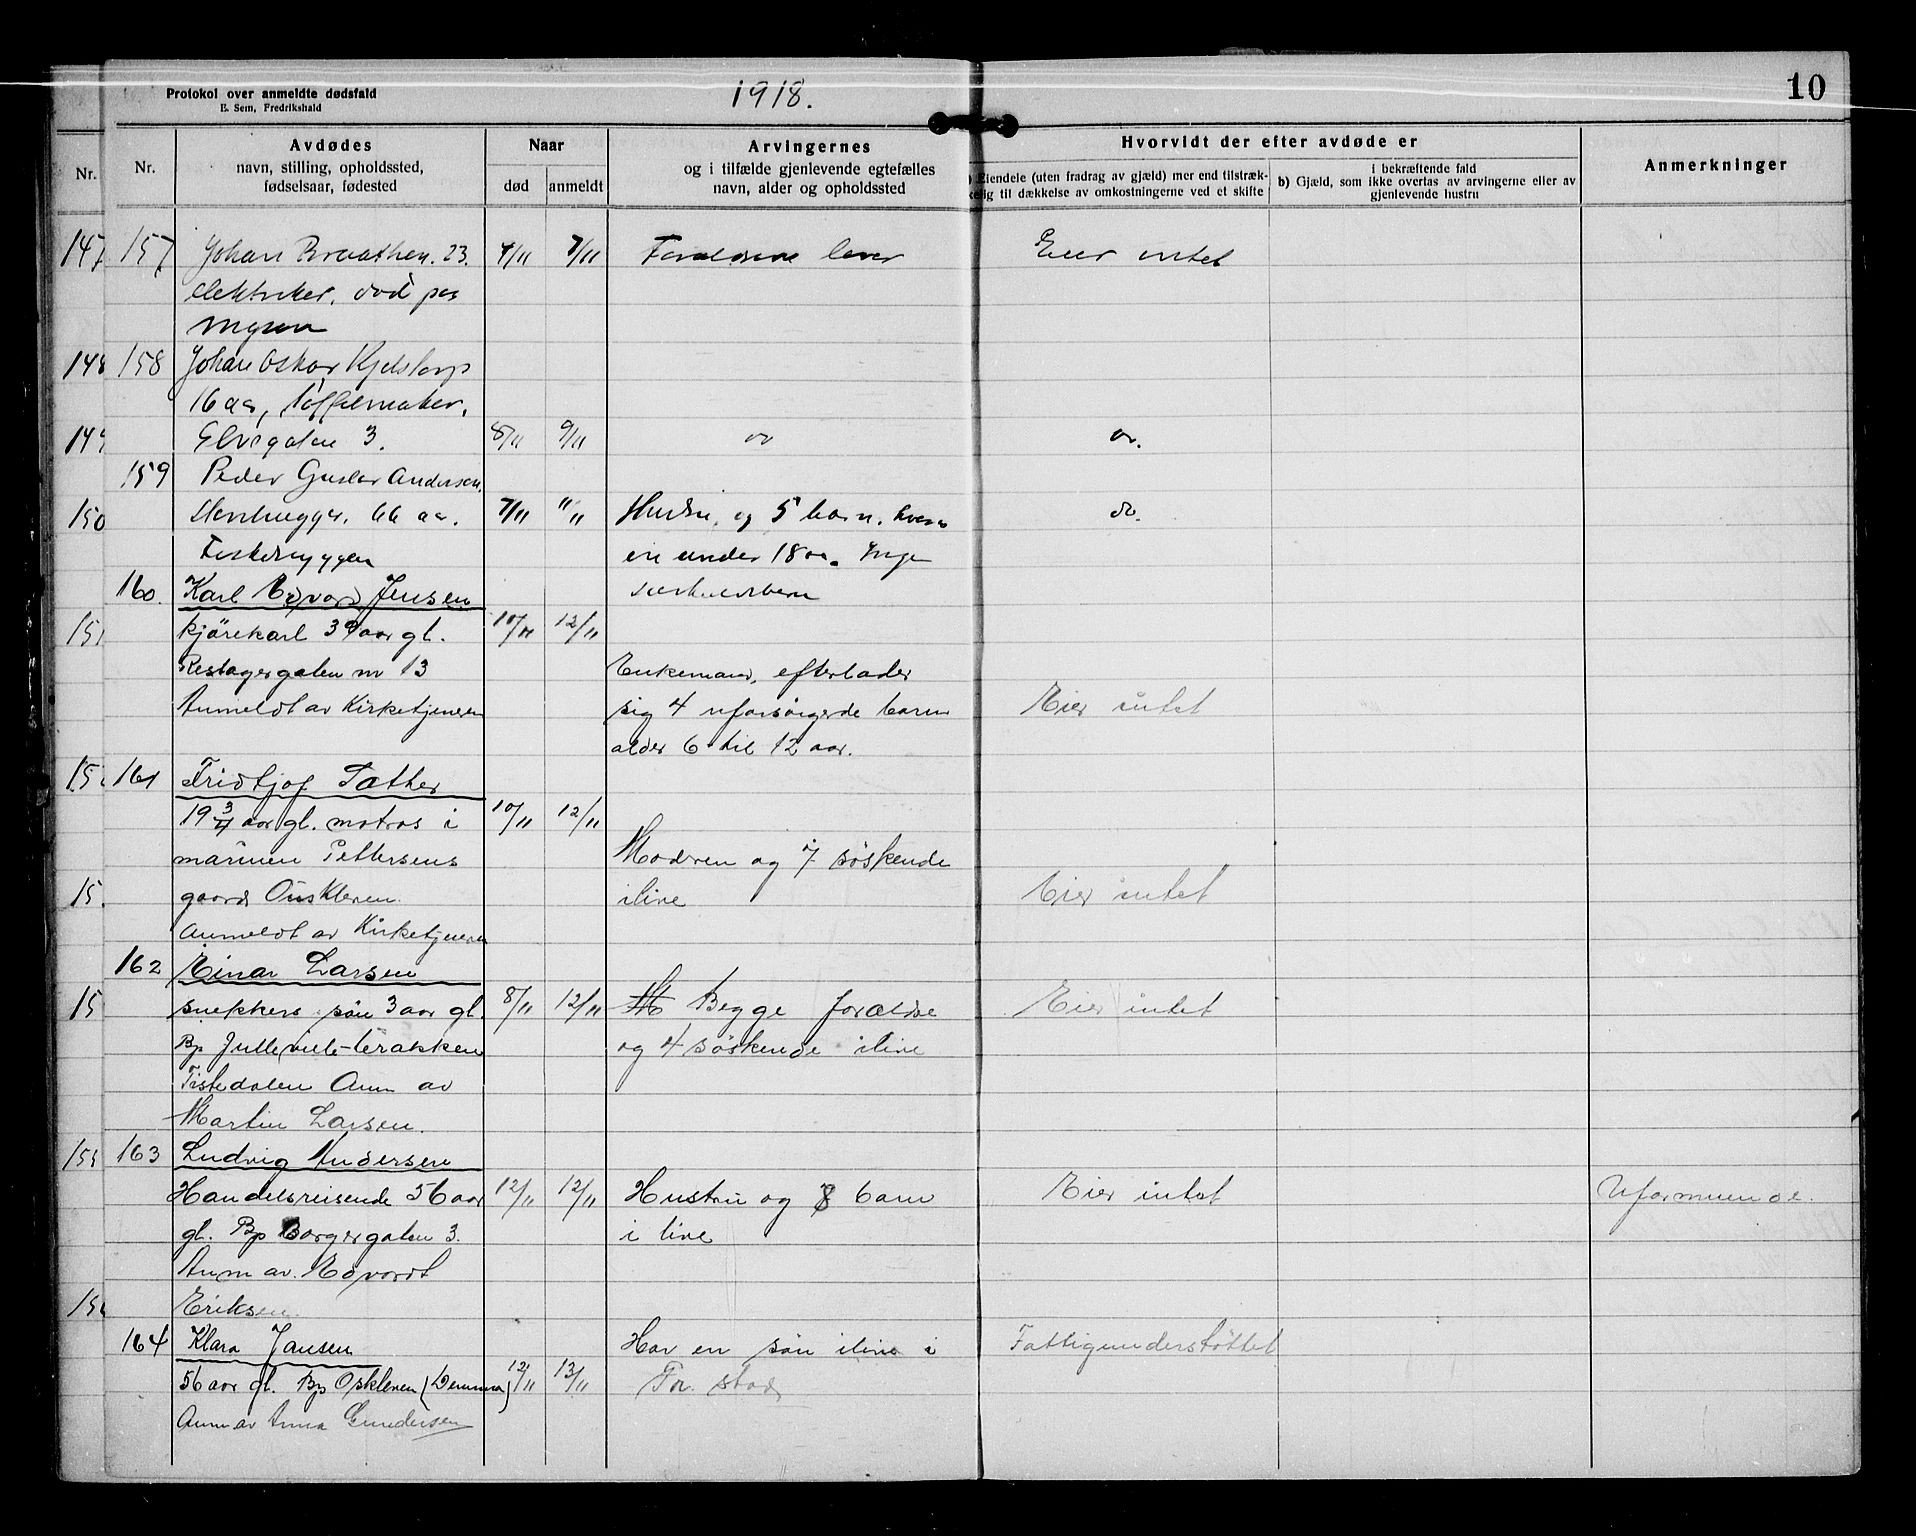 Protokol over anmeldte dødsfald
E. Sem, Fredrikshald
1918.
10
Nr.
Nr.
Avdødes
navn, stilling, opholdssted,
fødselsaar, fødested
Naar
død
anmeldt
Arvingernes
og i tilfælde gjenlevende egtefælles
navn, alder og opholdssted
Hvorvidt der efter avdøde er
i bekræftende fald
Eiendele (uten fradrag av gjæld) mer end tilstræk-
kelig til dækkelse av omkostningerne ved et skifte
b) Gjæld, som ikke overtas av arvingerne eller av
gjenlevende hustru
Anmerkninger
147 157 Johan Braathen. 23. 4/11 7/11 Forældrene lever Eier intet
elektriker, død paa
Mysen
148 158 Johan Oskar Kjelstorp
16 aa, Tøffelmaker,
149 Elvegaten 3. 8/11 9/11 do do.
159 Peder Gustav Andersen,
150 Stenhugger. 66 aa. 7/11 "/11 Hustru, og 5 barn. hvoraf do.
Fiskebryggen en under 18 aa. Inge
160. Karl Edvard Jensen særkuldsbarn
151 kjörekarl 39 aar gl. 10/11 12/11
gaten nr 13 Enkemand, efterlader
Anmeldt av Kirketjeneren sig 4 uforsörgede barn Eier intet
alder 6 til 12 aar.
15 161 Fridtjof Sæther
19 3/4 aar gl. matros i 10/11 12/11
marinen Pettersens Modren og 7 söskende
15. gaard Ouskleven. ilive Eier intet
Anmeldt av Kirketjeneren
162 Einar Larsen
15 snekkers sön 3 aar gl. 8/11 12/11 Begge forældre Eier intet
Bp Julleviebrakken og 4 söskende ilive
Tistedalen Anm av
Martin Larsen.
155 163 Ludvig Andersen
Handelsreisende 56 aar 12/11 12/11 Hustru og 8 barn Eier intet Uformuende.
gl. Bp Borgergaten 3. i live
Anm av. Edvardt
156 Eriksen.
164 Klara Jansen Har en sön ilive i Fattigunderstöttet
56 aar gl. Bp Oskleven (Demma) 12/11 13/11 Fr. stad,
Anm av Anna Gundersen